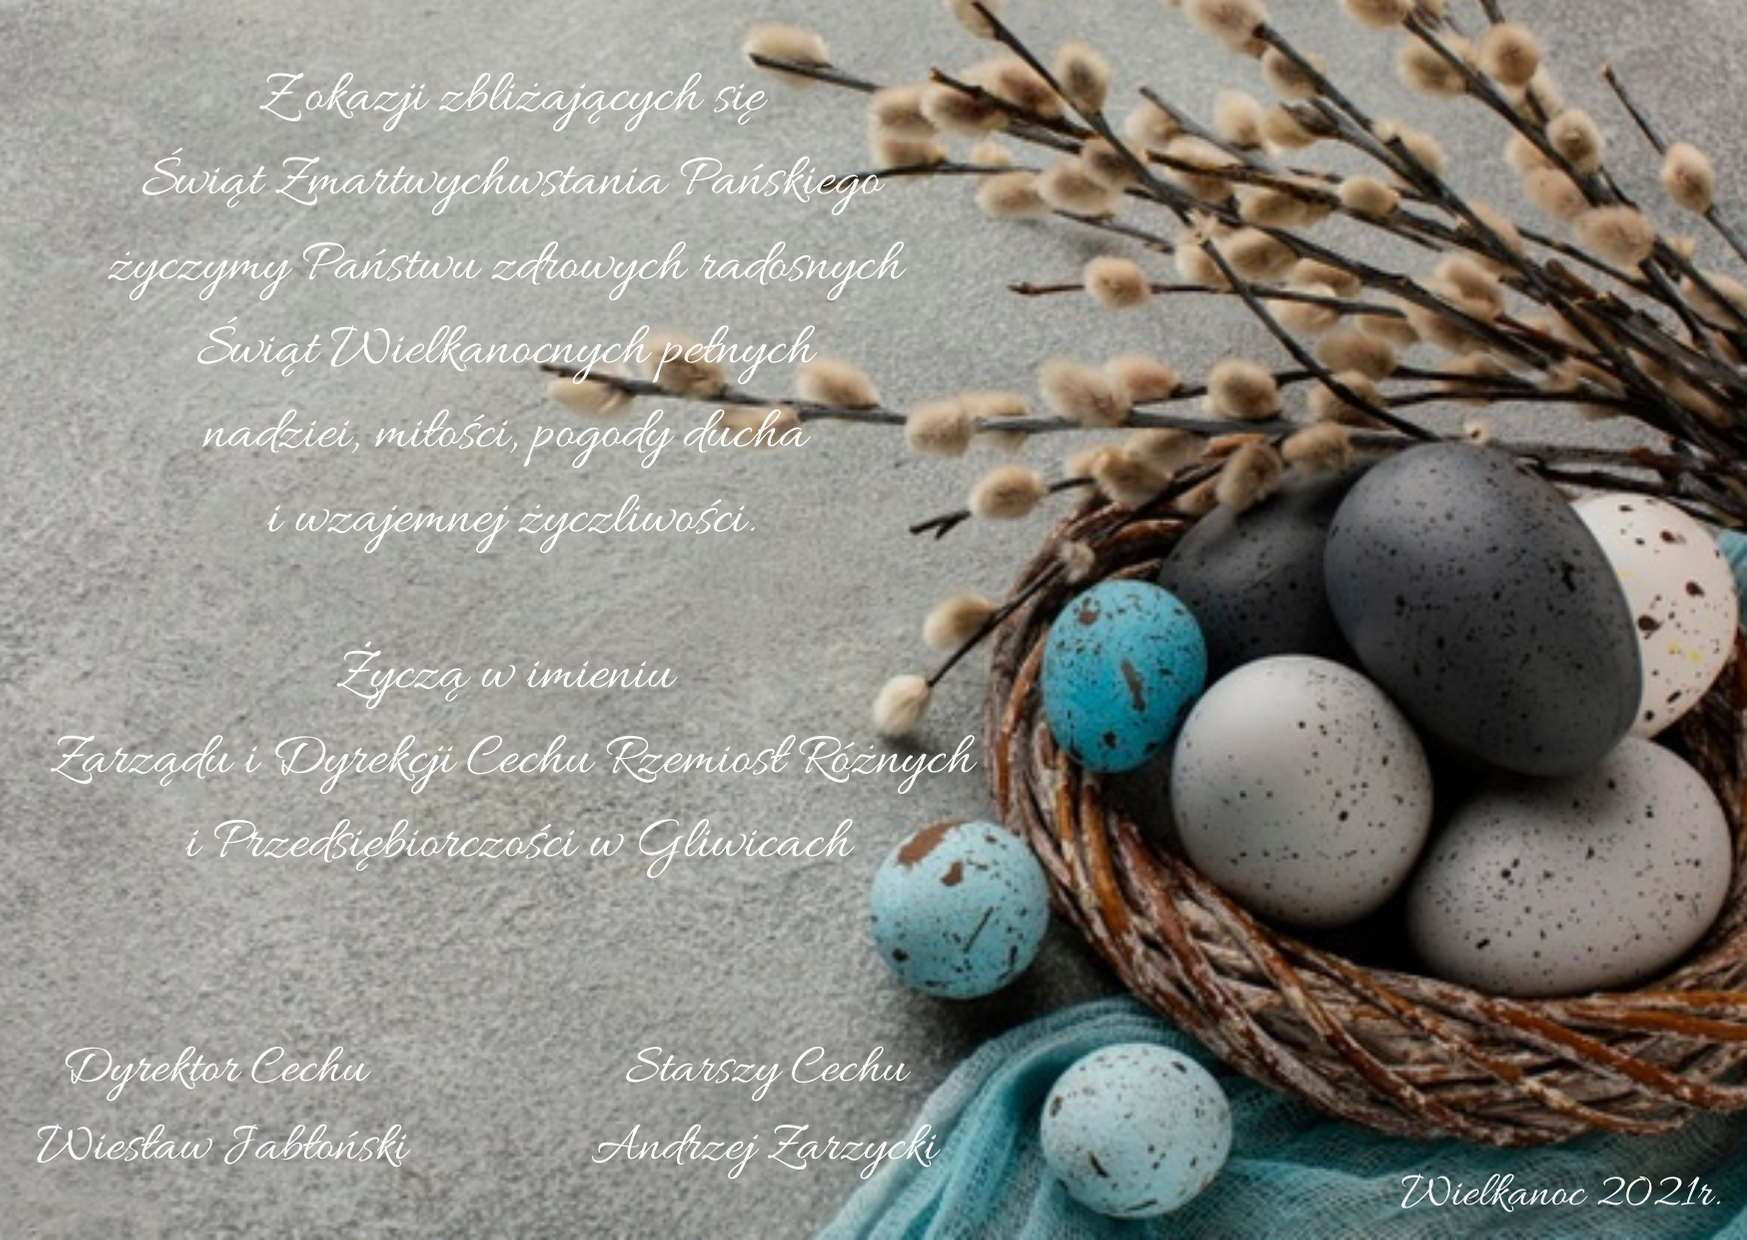 Z okazji zbliżających się
Świąt Zmartwychwstania Pańskiego
życzymy Państwu zdrowych radosnych
Świąt Wielkanocnych pełnych
nadziei, miłości, pogody ducha
i wzajemnej życzliwości.
Życzą w imieniu
Zarządu i Dyrekcji Cechu Rzemiosł Różnych
i Przedsiębiorczości w Gliwicach
Dyrektor Cechu
Wiesław Jabłoński
Starszy Cechu
Andrzej Zarzycki
Wielkanoc 2021r.